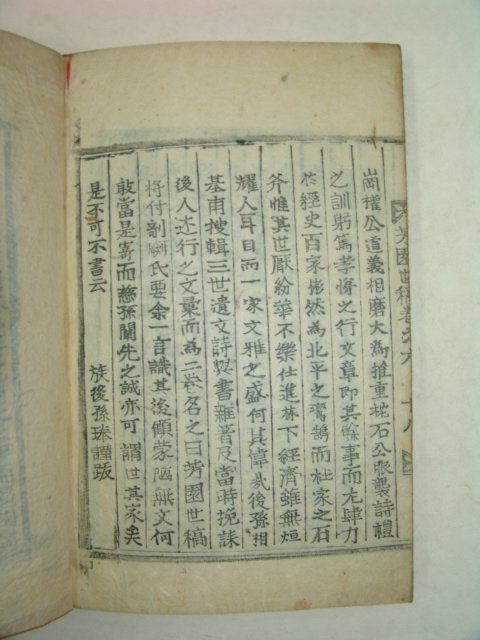 芳園世稿卷之六 十八
崗權公道義相磨大爲推重枕石公服襲詩禮
之訓躬篤孝悌之行文章卽其餘事而尤肆力
於經史百家彬然爲北平之鸞鵠而杜家之石
斧惟其世厭紛華不樂仕進林下經濟雖無烜
耀人耳目而一家文雅之盛何其偉哉後孫相
基甫搜輯三世遺文詩與書雜著及當時挽誄
後人述行之文彙而爲二卷名之曰芳園世稿
將付剞劂氏要余一言識其後傾蒙陋無文何
敢當是寄而慈孫闡先之誠亦可謂世其家矣
是不可不書云
族後孫瑧謹跋